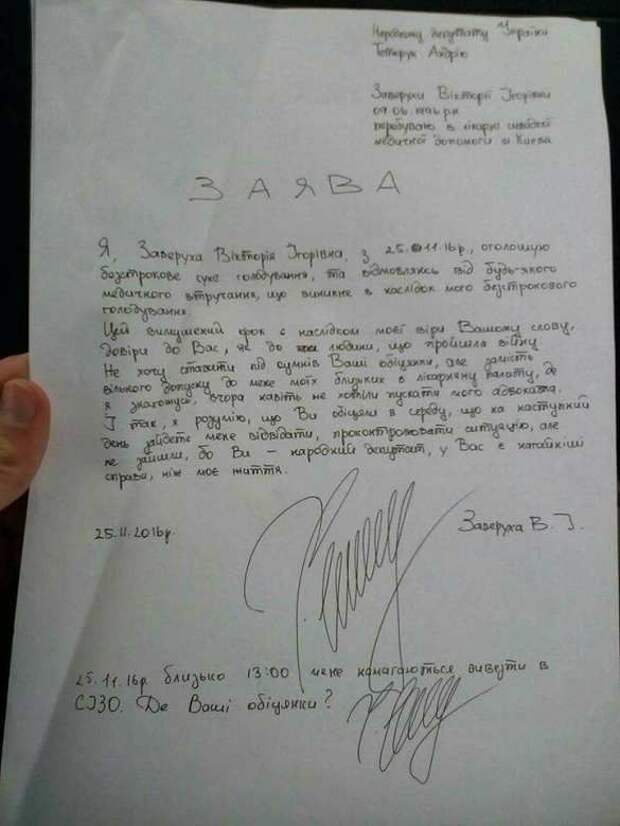 Народному депутату України
Тетерук Андрію
Заверухи Вікторії Ігорівни
перебуваю в лікарні швидкої
медичної допомоги м. Києва
ЗАЯВА
Я, Заверуха Вікторія Ігорівна, з 25.11.16р., оголошую
безстрокове сухе голодування, та відмовляюсь від будь-якого
медичного втручання, що виникне в наслідок мого безстрокового
голодування.
Цей вимушений крок є наслідком моєї віри Вашому слову,
довіри до Вас, як до людини, що пройшла війну
Не хочу ставити під сумнів Ваші обіцянки, але замість
вільного допуску до мене моїх близьких в лікарняну палату, де
я знаходжусь, вчора навіть не хотіли пускати мого адвоката.
І так, я розумію, що Ви обіцяли в середу, що на наступний
день зайдете мене відвідати, проконтролювати ситуацію, але
не зайшли, бо Ви – народний депутат, у Вас є нагайніші
справи, ніж моє життя.
25.11.2016р. Заверуха В. І.
25.11.16р близько 13:00 мене намагаються вивезти в
СІЗО. Де Ваші обіцянки?